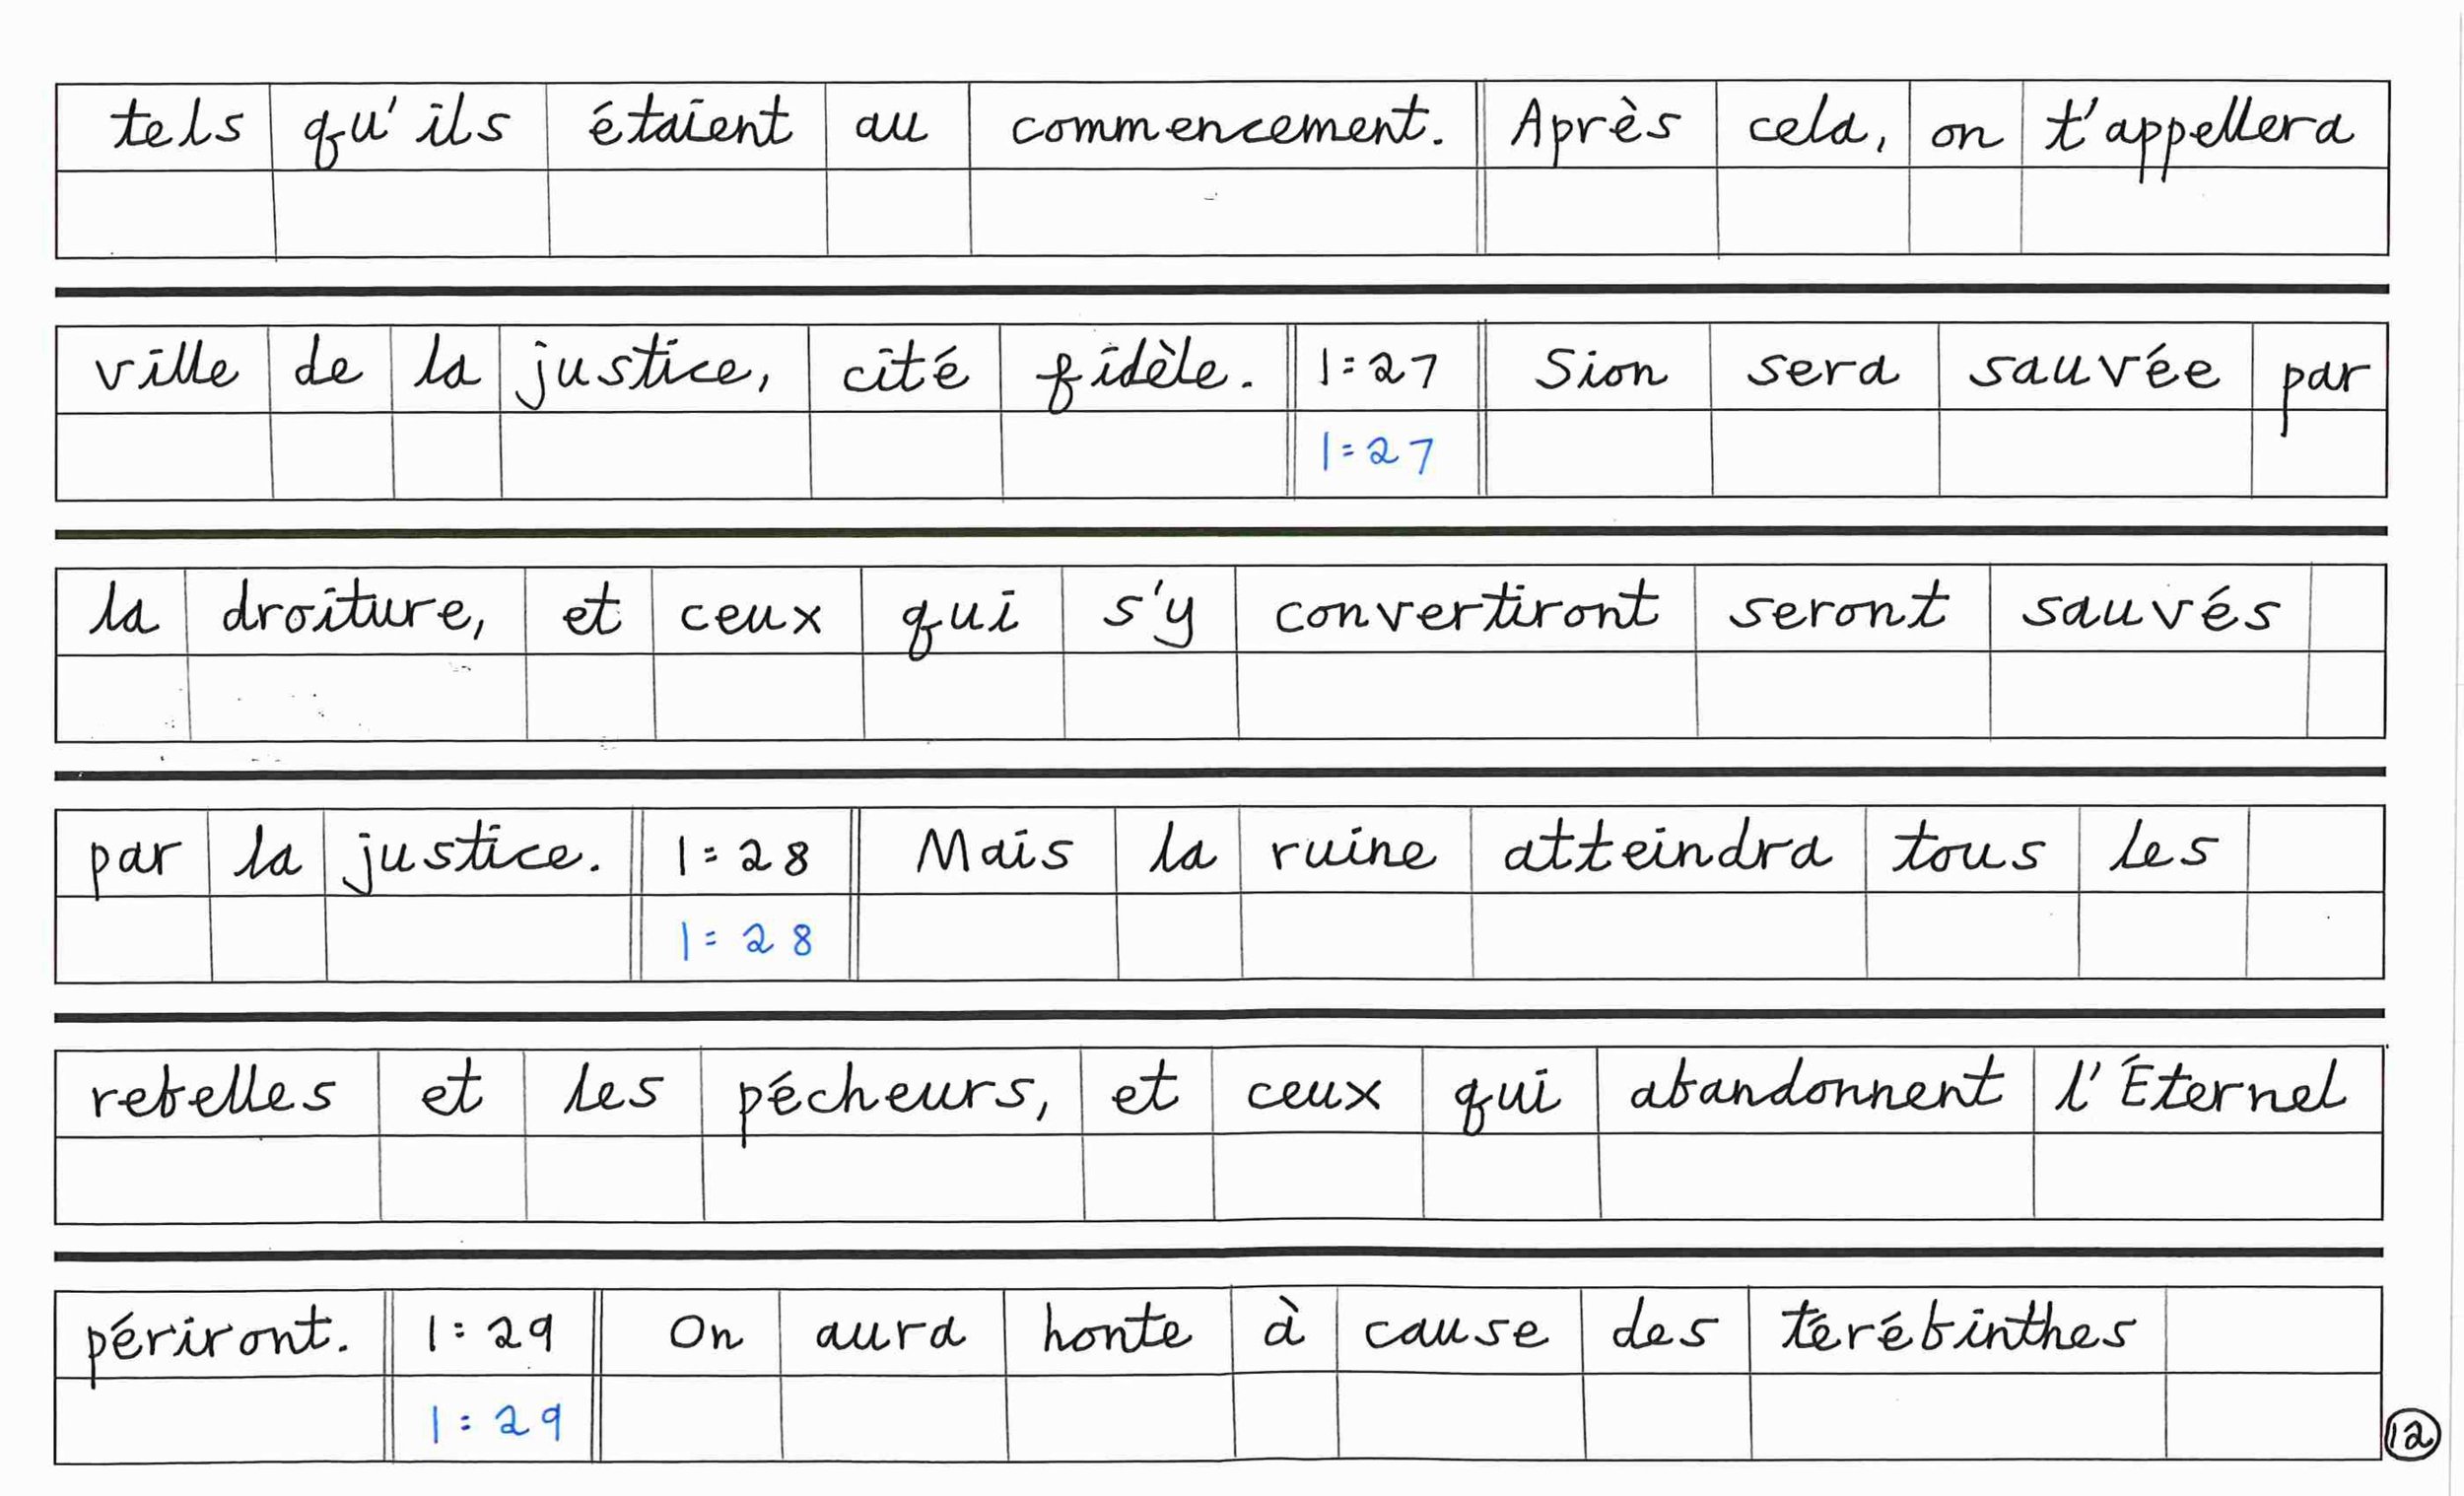 tels qu'ils étaient au commencement. Après cela, on t'appellera
ville de la justice, cité fidèle. 1:27 Sion sera sauvée par
1:27
la droiture, et ceux qui s'y convertiront seront sauvés
par la justice. 1:28 Mais la ruine atteindra tous les
1:28
rebelles et les pécheurs, et ceux qui abandonnent l'Éternel
périront. 1:29 On aura honte à cause des térébinthes
1:29
12